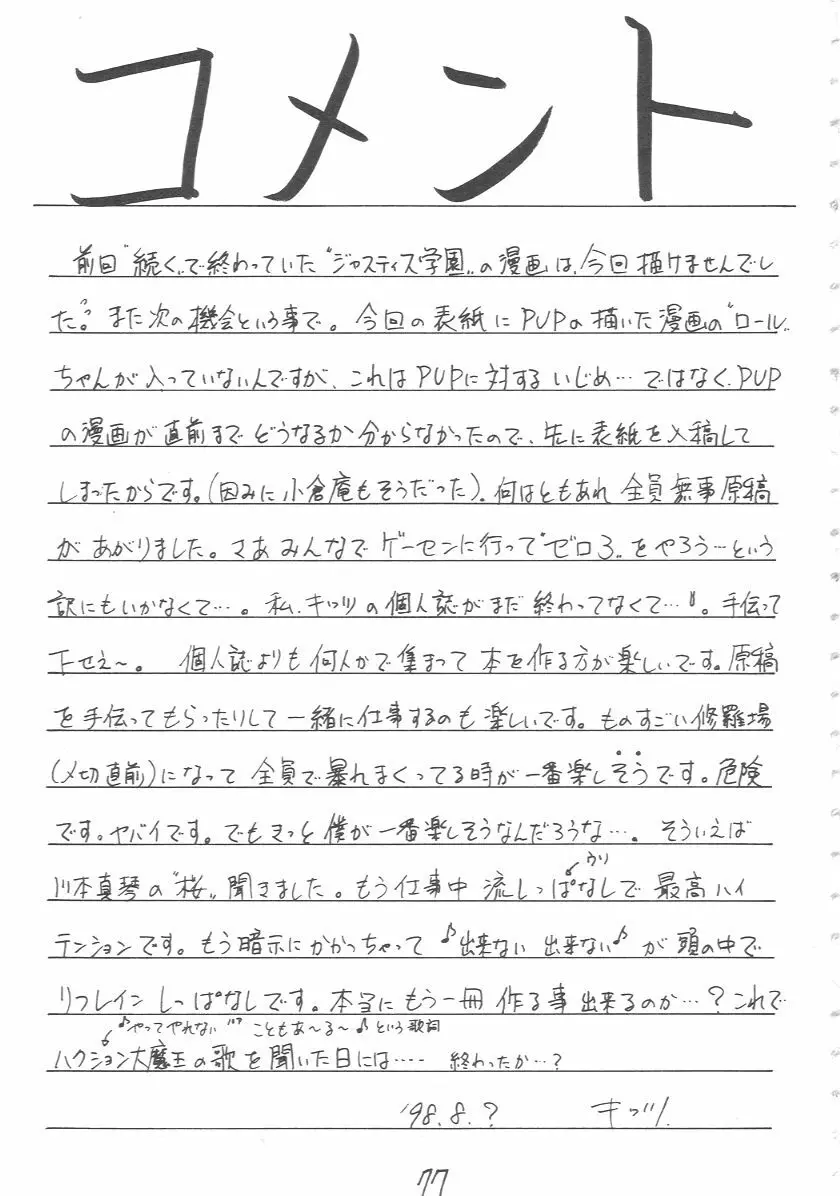 コメント
前回“続く〟で終わっていた“ジャスティス学園〟の漫画は、今回描けませんでし
た。また次の機会という事で。今回の表紙にPUPの描いた漫画の“ロール〟
ちゃんが入っていないんですが、これはPUPに対するいじめ…ではなく、PUP
の漫画が直前までどうなるか分からなかったので、先に表紙を入稿して
しまったからです。(因みに小倉庵もそうだった)。何はともあれ全員無事原稿
があがりました。さあみんなでゲーセンに行って“ゼロ3〟をやろう…という
訳にもいかなくて…。私、キッツの個人誌がまだ終わってなくて…。手伝って
下せえ〜。個人誌よりも何人かで集まって本を作る方が楽しいです。原稿
を手伝ってもらったりして一緒に仕事するのも楽しいです。ものすごい修羅場
(〆切直前)になって全員で暴れまくってる時が一番楽しそうです。危険
です。ヤバイです。でもきっと僕が一番楽しそうなんだろうな…。そういえば
川本真琴の“桜〟聞きました。もう仕事中流しっぱなしで最高ハイ
テンションです。もう暗示にかかっちゃって♪出来ない出来ない♪が頭の中で
リフレインしっぱなしです。本当にもう一冊作る事出来るのか…?これで
♪やってやれないこともあ〜る〜♪という歌詞
ハクション大魔王の歌を聞いた日には…… 終わったか…?
'98.8.? キッツ
77